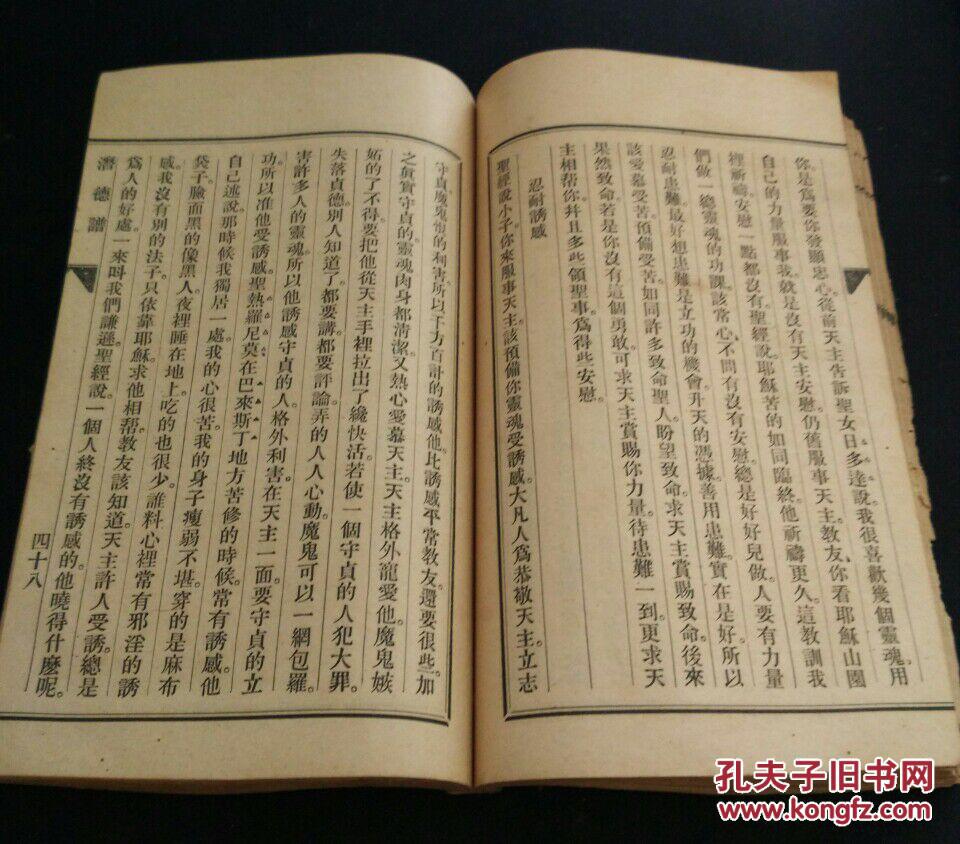 你。是爲要你發顯忠心。從前天主告訴聖女日多達說。我很喜歡幾個靈魂。用
自己的力量服事我。就是沒有天主安慰。仍舊服事天主。教友。你看耶穌山園
裡祈禱。安慰一點都沒有。聖經說。耶穌苦的如同臨終。他祈禱更久。這教訓我
們做一總靈魂的功課。該常心。不問有沒有安慰。總是好好兒做。人要有力量
忍耐患難。最好想患難是立功的機會。升天的憑據。善用患難。實在是好。所以
該愛慕受苦。預備受苦。如同許多致命聖人。盼望致命。求天主賞賜致命。後來
果然致命。若是你沒有這個勇敢。可求天主賞賜你力量。待患難一到。更求天
主相幫你。幷且多些領聖事。爲得些安慰。
忍耐誘感
聖經說。小子。你來服事天主。該預備你靈魂受誘感。大凡人爲恭敬天主立志
守貞。魔鬼恨的利害。所以千方百計的誘感他。比誘感平常教友。還要很些。加
之眞實守貞的。靈魂肉身。都清潔。又熱心愛慕天主。天主格外寵愛他。魔鬼嫉
妬的了不得。要把他從天主手裡拉出了纔快活。若使一個守貞的人犯大罪。
失落貞德。別人知道了。都要講。都要評論。弄的人人心動。魔鬼可以一網包羅。
害許多人的靈魂。所以他誘感守貞的人。格外利害。在天主一面。要守貞的立
功。所以准他受誘感。聖熱羅尼莫。在巴來斯丁地方苦修的時候。常有誘感。他
自己述說。那時候我獨居一處。我的心很苦。我的身子瘦弱不堪。穿的是麻布
袋子。臉面黑的像黑人。夜裡睡在地上。吃的也很少。誰料心裡常有邪淫的誘
感。我沒有別的法子。只依靠耶穌。求他相幫。教友該知道。天主許人受誘。總是
爲人的好處。一來叫我們謙遜。聖經說。一個人終沒有誘感的。他曉得什麼呢。
濳德譜
四十八
孔夫子旧书网
www.kongfz.com